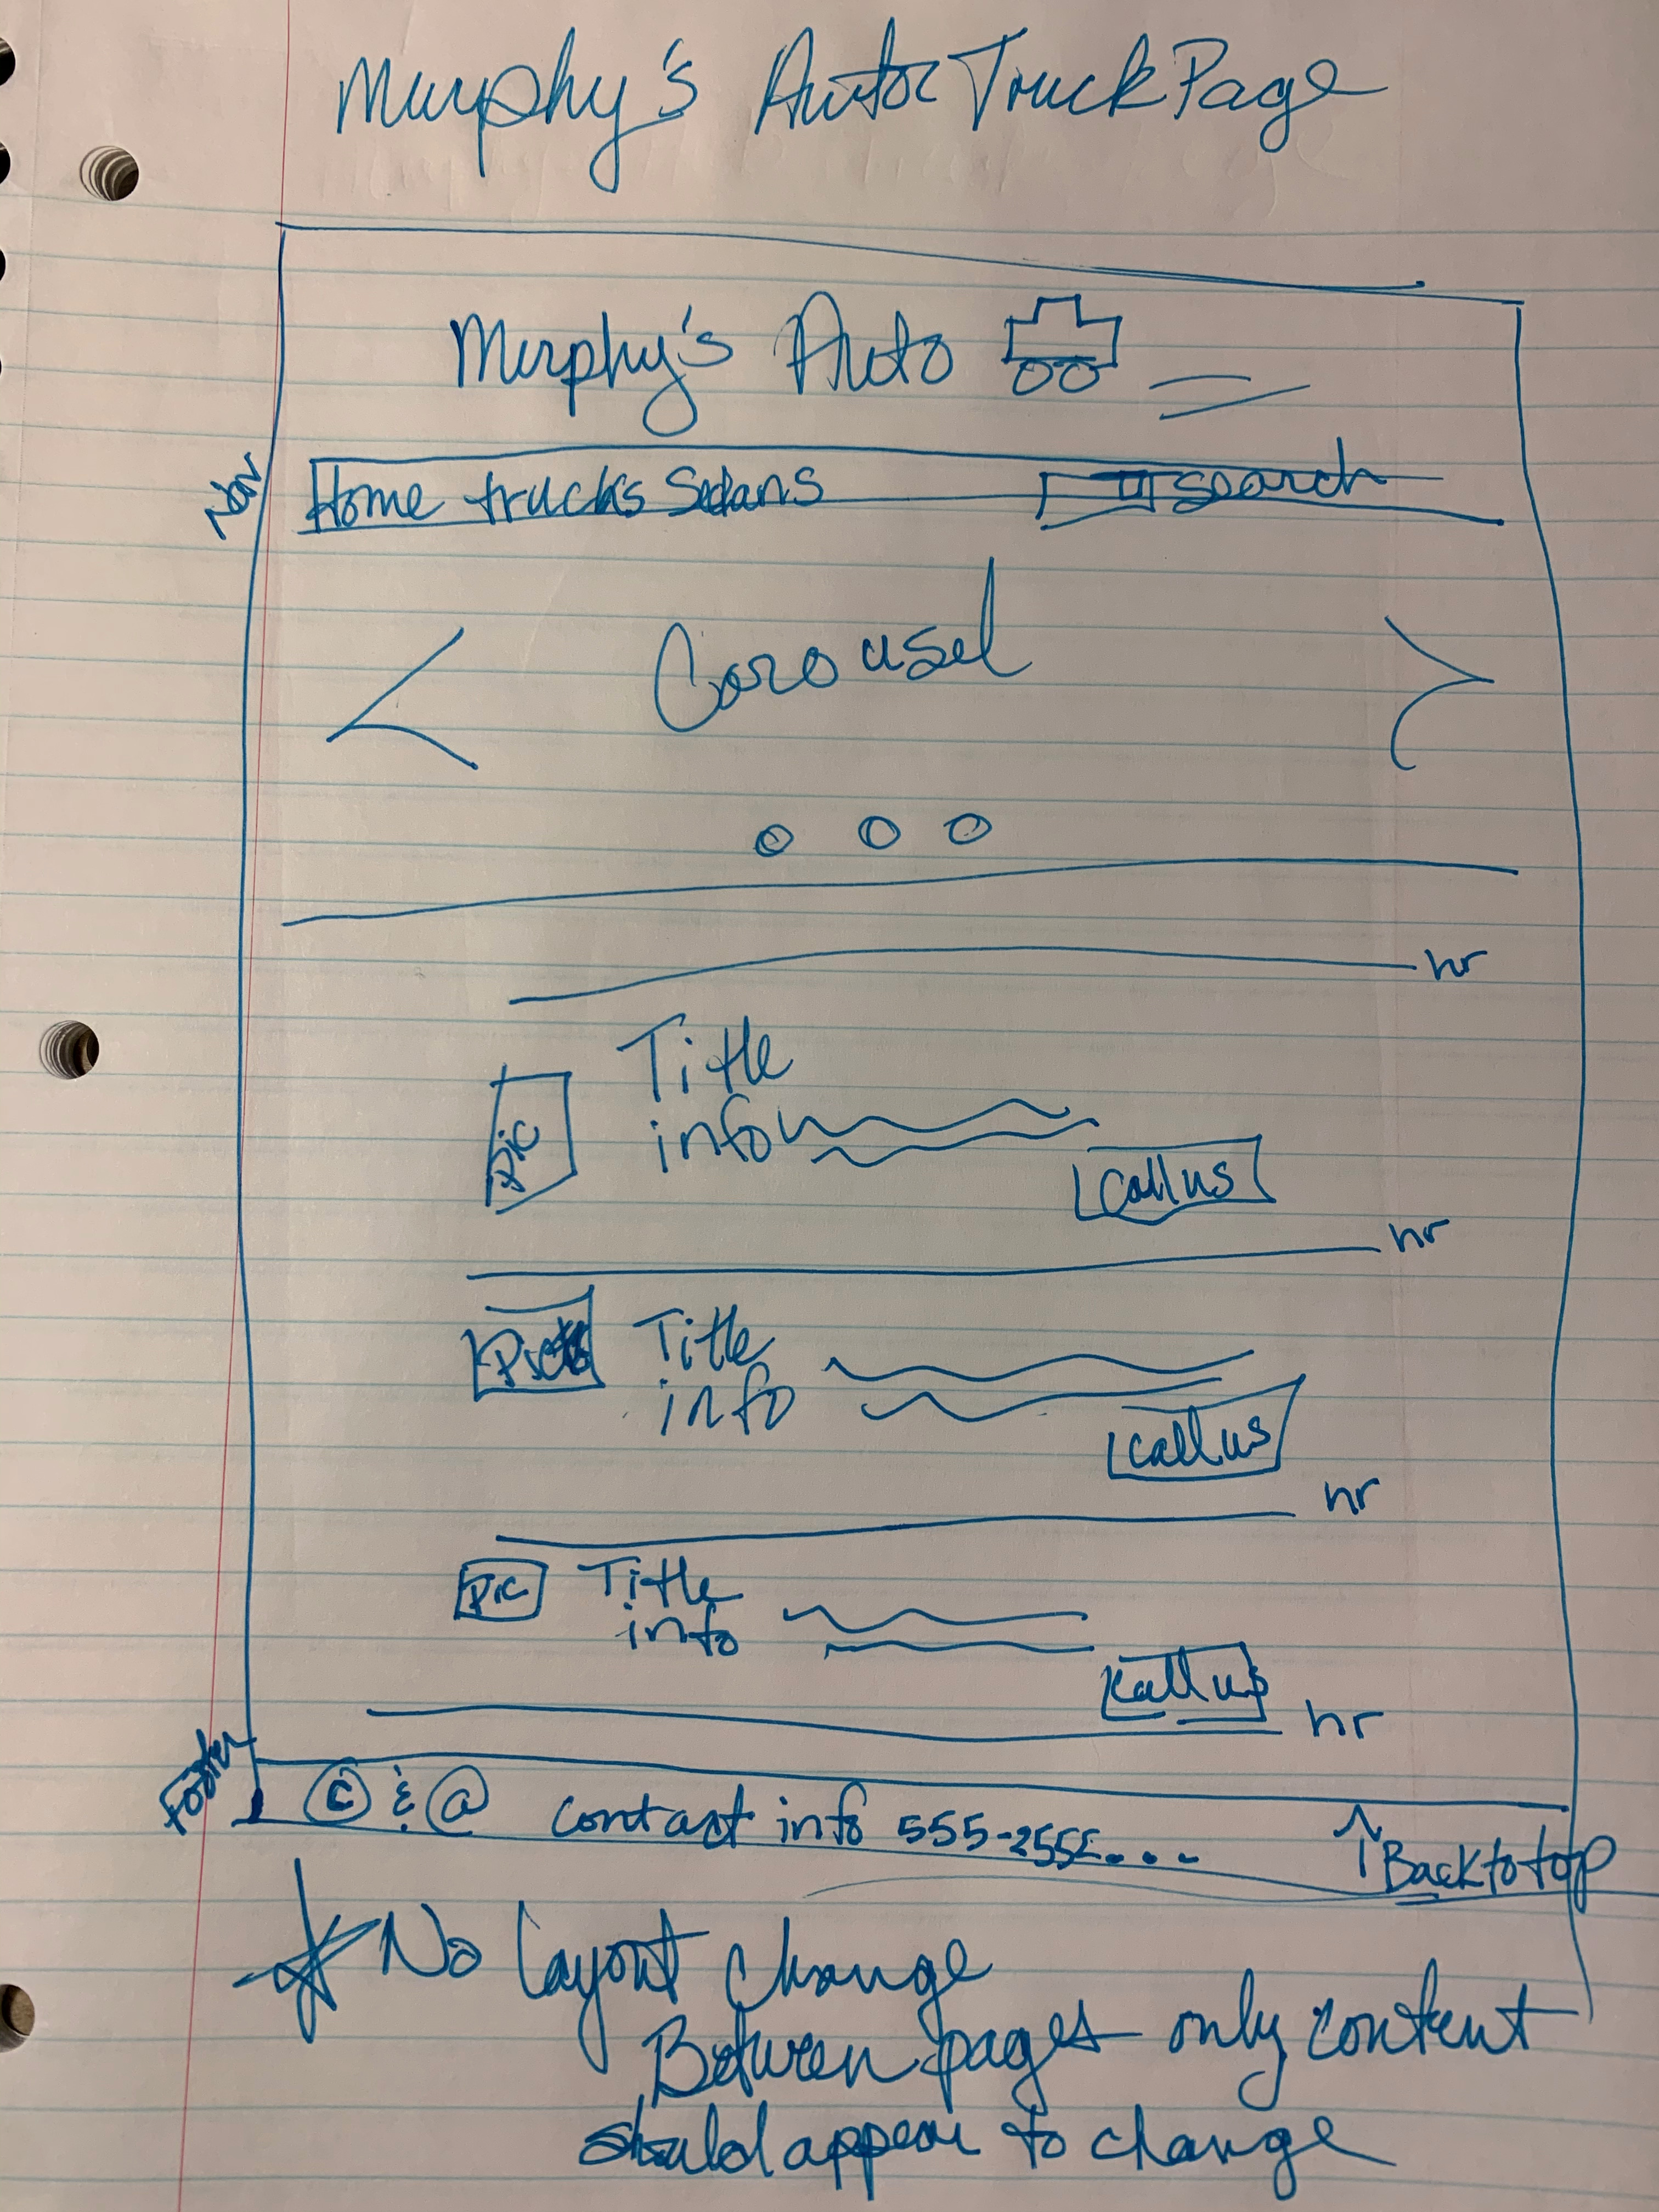 Murphy's Auto Truck Page
Murphy's Auto
Nav
Home trucks Sedans search
Carousel
hr
Title
pic info
Call us
hr
Title
info
call us
hr
Pic Title
info
Call us
hr
Footer
© & @ contact info 555-2555...
Back to top
No layout change
Between pages only content
should appear to change